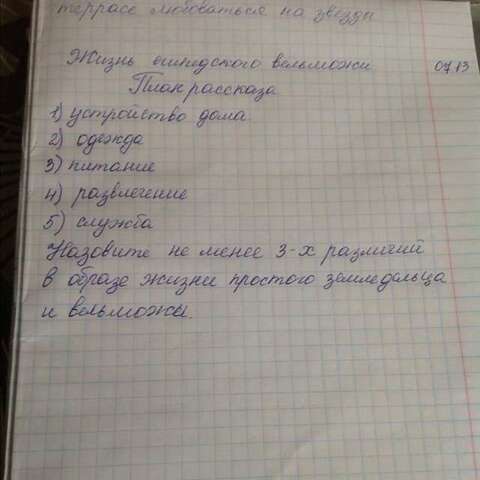 террасе любоваться на звезды
Жизнь египедского вельможи 07.13
План рассказа
1) устройство дома.
2) одежда
3) питание
4) развлечение
5) служба
Назовите не менее 3-х различий
в образе жизни простого земледельца
и вельможы.